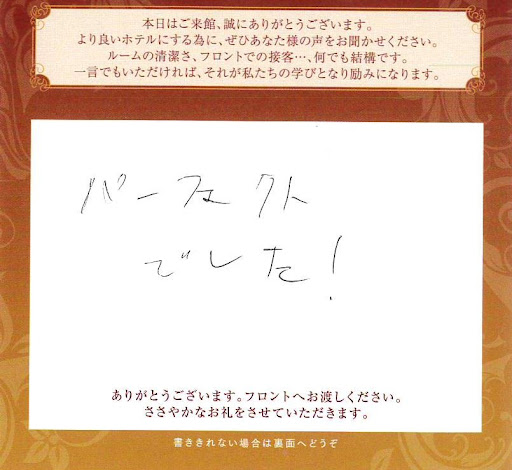 本日はご来館、誠にありがとうございます。
より良いホテルにする為に、ぜひあなた様の声をお聞かせください。
ルームの清潔さ、フロントでの接客…、何でも結構です。
一言でもいただければ、それが私たちの学びとなり励みになります。
パーフェクト
でした!
ありがとうございます。フロントへお渡しください。
ささやかなお礼をさせていただきます。
書ききれない場合は裏面へどうぞ